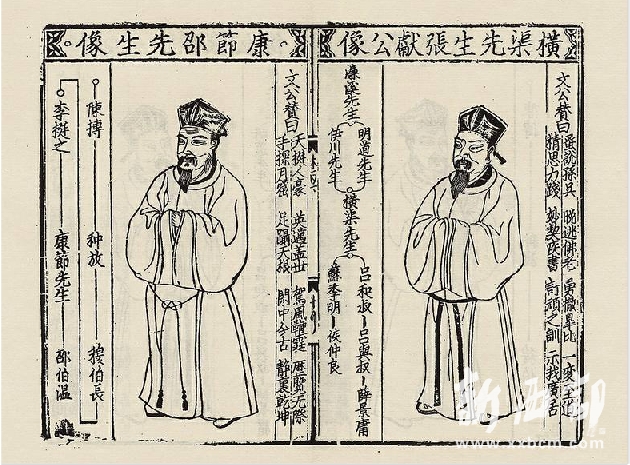 橫渠先生張獻公像
文公贊曰
蚤說孫吳 晚逃佛老 勇撤皋比 一變至道
精思力踐 妙契疾書 訂頑之訓 示我廣居
濂溪先生
明道先生
伊川先生
橫渠先生
呂和叔 呂與叔 薛景庸
蘇季明 侯仲良
康節邵先生像
文公贊曰
天挺人豪 英邁盖世 駕風鞭霆 歷覽无際
手探月窟 足躡天根 閒中今古 裏乾坤
陳摶 种放 穆伯長
李挺之 康節先生 邵伯温
新西部
www.xxbcm.com